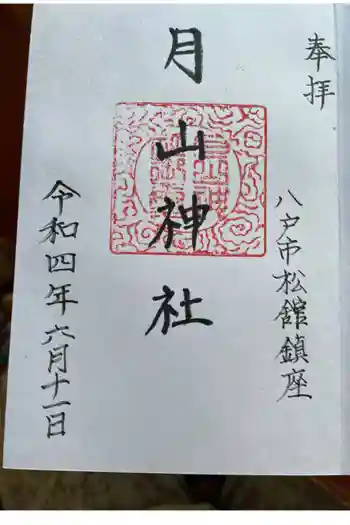 奉拝
八戸市松舘鎮座
月山神社
令和四年六月十一日